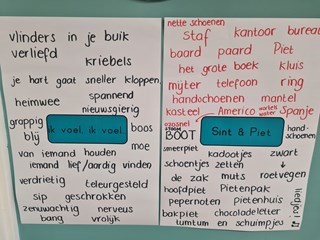 vlinders in je buik
verliefd
kriebels
je hart gaat sneller kloppen
heimwee
spannend
nieuwsgierig
grappig
blij
ik voel, ik voel...
boos
moe
van iemand houden
iemand lief/aardig vinden
verdrietig
teleurgesteld
sip
geschrokken
zenuwachtig
nerveus
bang
vrolijk
nette schoenen
staf
kantoor
bureau
baard
paard
Piet
het grote boek
kluis
mijter
telefoon
ring
handschoenen
mantel
kasteel
Americo
Spanje
ozosnel
stoom
BOOT
Sint & Piet
hand-
schoenen
smeerpiet
kadootjes
zwart
schoentjes zetten
↓
de zak
muts
roetvegen
hoofdpiet
Pietenpak
pepernoten
pietenhuis
liedjes!
bakpiet
chocoladeletter
tumtum en schuimpjes